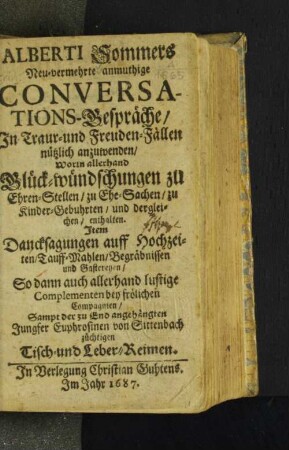 ALBERTI Sommers
Neu-vermehrte anmuthige
CONVERSA-
TIONS-Gespräche/
In Traur-und Freuden-Fällen
nützlich anzuwenden/
Worin allerhand
Glück-wündschungen zu
Ehren-Stellen/ zu Ehe-Sachen/ zu
Kinder-Gebuhrten/ und derglei-
chen/ enthalten.
Item
Dancksagungen auff Hochzei-
ten/Tauff-Mahlen/Begräbnissen
und Gastereyen/
So dann auch allerhand lustige
Complementen bey frölichen
Compagnien/
Sampt der zu End angehängten
Jungfer Euphrosinen von Sittenbach
züchtigen
Tisch-und Leber-Reimen.
In Verlegung Christian Guhtens.
Im Jahr 1687.